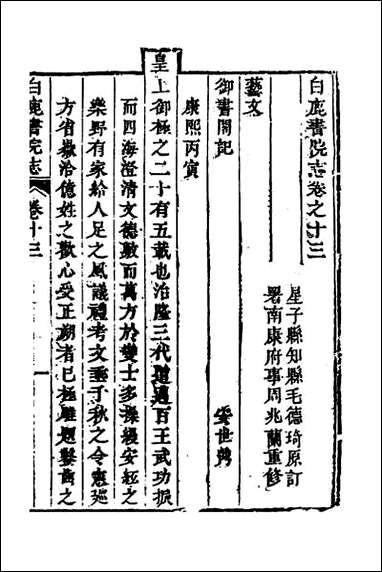 白鹿書院志卷之十三
星子縣知縣毛德琦原訂
署南康府事周兆蘭重修
藝文
御書閣記
安世鼎
康熙丙寅
皇上御極之二十有五載也治隆三代道邁百王武功振
而四海澄清文德敷而萬方於變士多操縵安絃之
樂野有家給人足之風議禮考文垂千秋之令憲巡
方省斂洽億姓之歡心受正朔者已極雕題鑿齒之
白鹿書院志
卷十三
一